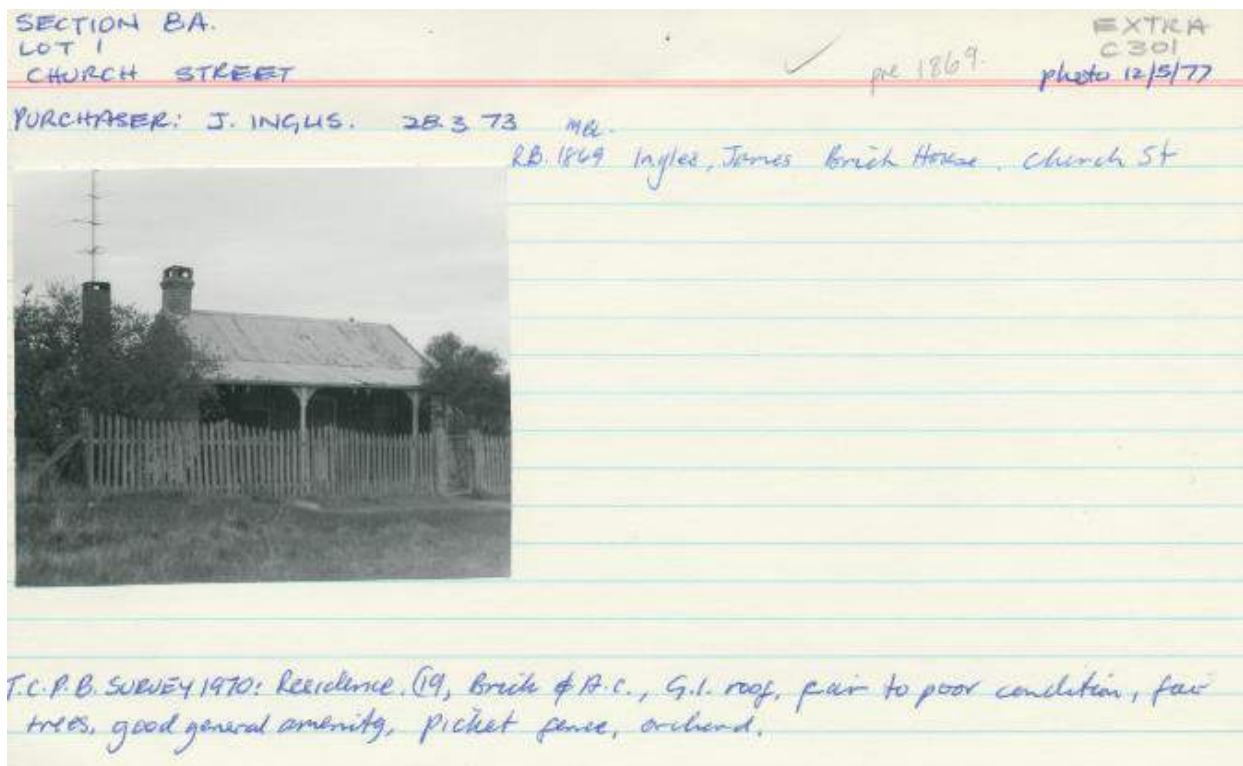 SECTION 8A.
LOT 1
CHURCH STREET
EXTRA
C301
pre 1869.
photo 12/5/77
PURCHASER: J. INGLIS. 28.3 73
R.B. 1869 Ingles, James Brick House. Church St
T.C.P.B. SURVEY 1970: Residence, C19, Brick & A.C., G.I. roof, fair to poor condition, fair
trees, good general amenity, picket fence, orchard.